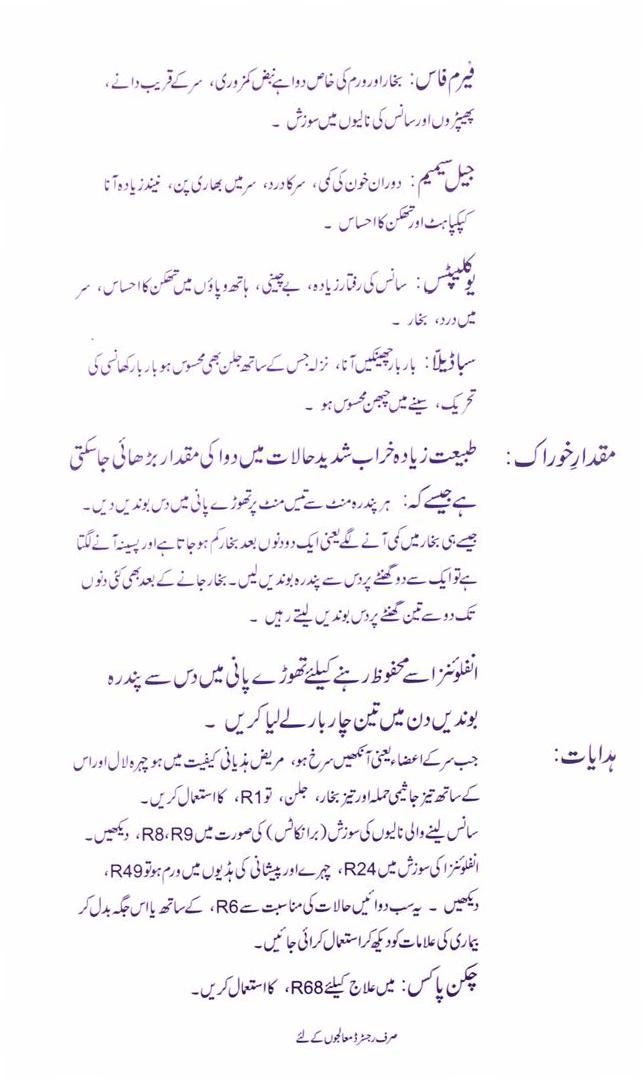 فیرم فاس: بخار اور ورم کی خاص دوا ہے نبض کمزوری، سر کے قریب دانے،
پھیپڑوں اور سانس کی نالیوں میں سوزش ۔
جیل سیمیم: دوران خون کی کمی، سر کا درد، سر میں بھاری پن، نیند زیادہ آنا
کپکپاہٹ اور تھکن کا احساس ۔
یوکلپٹس: سانس کی رفتار زیادہ، بے چینی، ہاتھ و پاؤں میں تھکن کا احساس، سر
میں درد، بخار ۔
سباڈیلّا: بار بار چھینکیں آنا، نزلہ جس کے ساتھ جلن بھی محسوس ہو بار بار کھانسی کی
تحریک، سینے میں چبھن محسوس ہو ۔
مقدارِ خوراک: طبیعت زیادہ خراب شدید حالات میں دوا کی مقدار بڑھائی جا سکتی
ہے جیسے کہ: ہر پندرہ منٹ سے تیس منٹ پر تھوڑے پانی میں دس بوندیں دیں۔
جیسے ہی بخار میں کمی آنے لگے یعنی ایک دو دنوں بعد بخار کم ہو جاتا ہے اور پسینہ آنے لگتا
ہے تو ایک سے دو گھنٹے پر دس سے پندرہ بوندیں لیں۔ بخار جانے کے بعد بھی کئی دنوں
تک دو سے تین گھنٹے پر دس بوندیں لیتے رہیں ۔
انفلوئنزا سے محفوظ رہنے کیلئے تھوڑے پانی میں دس سے پندرہ
بوندیں دن میں تین چار بار لے لیا کریں ۔
ہدایات: جب سر کے اعضاء یعنی آنکھیں سرخ ہو، مریض ہذیانی کیفیت میں ہو چہرہ لال اور اس
کے ساتھ تیز جاثیمی حملہ اور تیز بخار، جلن، تو R1، کا استعمال کریں۔
سانس لینے والی نالیوں کی سوزش (برانکائٹس) کی صورت میں R8،R9، دیکھیں۔
انفلوئنزا کی سوزش میں R24، چہرے اور پیشانی کی ہڈیوں میں ورم ہو تو R49،
دیکھیں ۔ یہ سب دوائیں حالات کی مناسبت سے R6، کے ساتھ یا اس جگہ بدل کر
بیماری کی علامات کو دیکھ کر استعمال کرائی جائیں۔
چکن پاکس: میں علاج کیلئے R68، کا استعمال کریں۔
صرف رجسٹرڈ معالجوں کے لئے